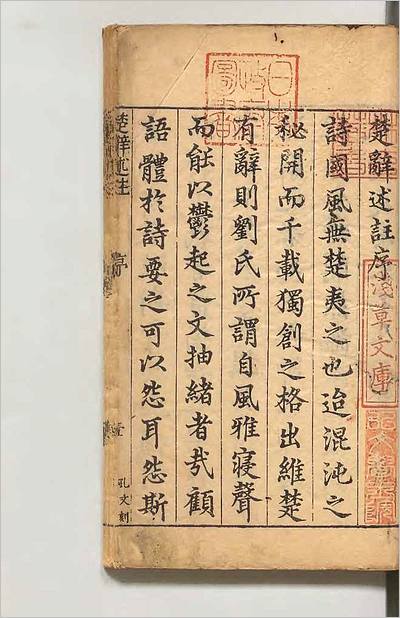 楚辭述註序
詩國風無楚夷之也迨混沌之
秘開而千載獨創之格出維楚
有辭則劉氏所謂自風雅寢聲
而能以鬱起之文抽緒者哉顧
語體於詩要之可以怨耳怨斯
楚辭述註
序
孔文刻
淺草文庫